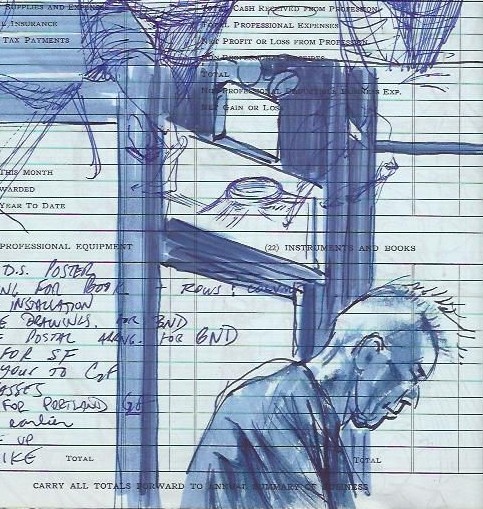 SUPPLIES AND EXPENSE
CASH RECEIVED FROM PROFESSION
L INSURANCE
TOTAL PROFESSIONAL EXPENSES
TAX PAYMENTS
NET PROFIT OR LOSS FROM PROFESSION
TOTAL
EXP.
NET GAIN OR LOSS
THIS MONTH
WARDED
YEAR TO DATE
PROFESSIONAL EQUIPMENT
(22) INSTRUMENTS AND BOOKS
D.S. POSTER
NG FOR BOOK - ROWS:
INSTALLATION
E DRAWINGS. FOR BND
E POSTAL FOR BND
FOR SF
YOUR TO
ASSES
FOR PORTLAND
earlier
E UP
IKE TOTAL
TOTAL
CARRY ALL TOTALS FORWARD TO ANNUAL SUMMARY OF BUSINESS